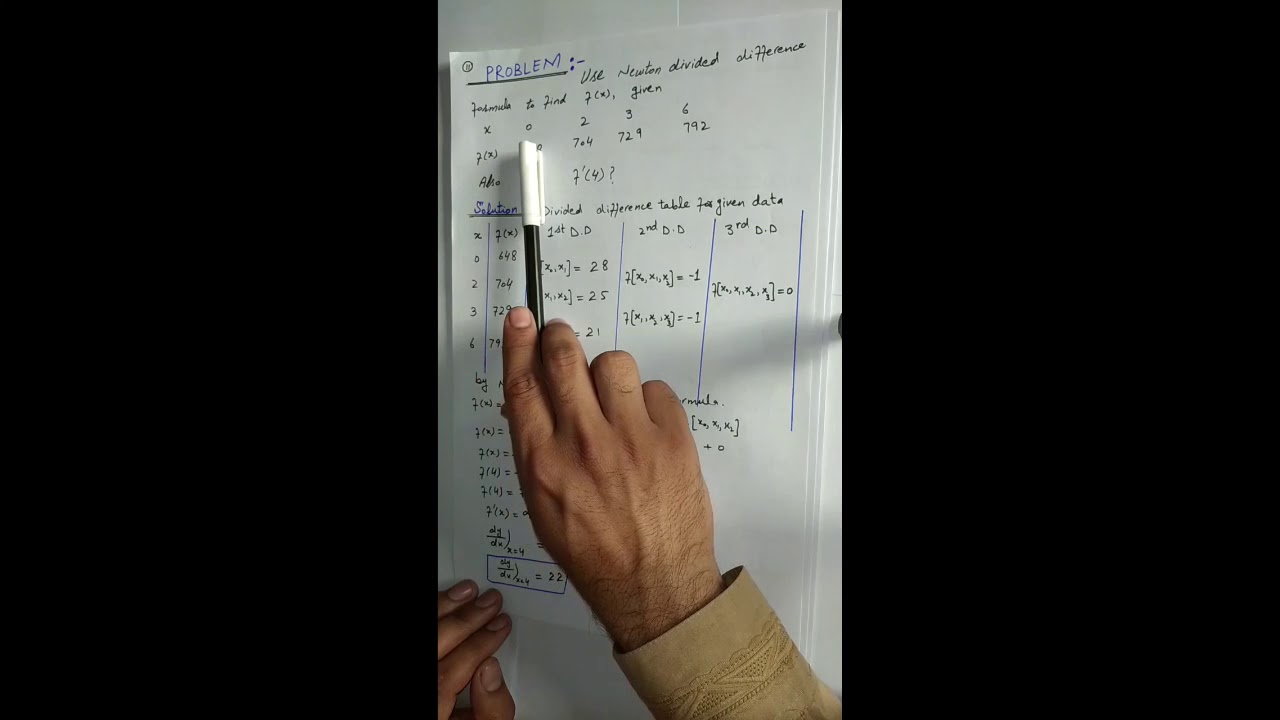 11 PROBLEM :- Use Newton divided difference
Formula to Find f(x), given
x 0 2 3 6
f(x) 704 729 792
Also f'(4)?
Solution Divided difference table For given data
x f(x) 1st D.D 2nd D.D 3rd D.D
0 648
[x₀,x₁] = 28
f[x₀,x₁,x₂] = -1
2 704
f[x₀,x₁,x₂,x₃] = 0
x₁,x₂] = 25
3 729
f[x₁,x₂,x₃] = -1
= 21
6 79
by
f(x) = ormula.
f(x) = [x₀,x₁,x₂]
f(x) = + 0
f(4) =
f(4) = 7
f'(x) =
dy/dx)x=4 =
dy/dx)x=4 = 22